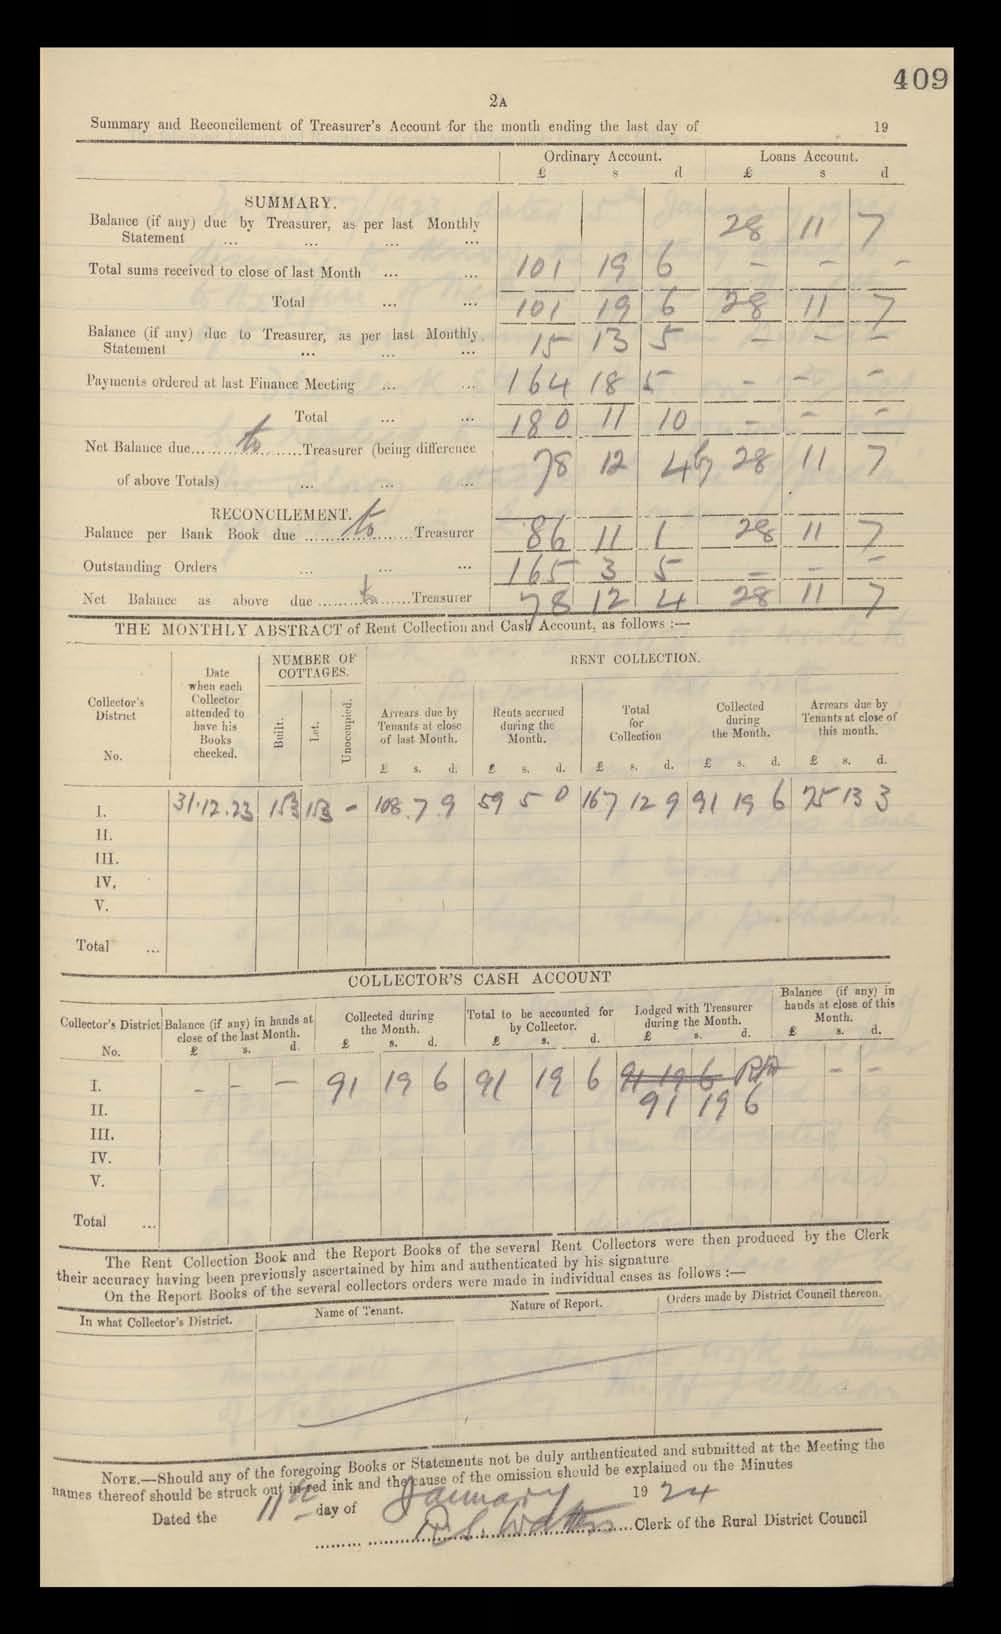 409
2A
Summary and Reconcilement of Treasurer's Account for the month ending the last day of 19
Ordinary Account. Loans Account.
£ s d £ s d
SUMMARY.
Balance (if any) due by Treasurer, as per last Monthly
Statement ... ... ... ... 28 11 7
Total sums received to close of last Month ... ... 101 19 6 – – –
Total ... ... 101 19 6 28 11 7
Balance (if any) due to Treasurer, as per last Monthly
Statement ... ... ... 15 13 5 – – –
Payments ordered at last Finance Meeting ... ... 164 18 5 – – –
Total ... ... 180 11 10 – – –
Net Balance due......to......Treasurer (being difference
of above Totals) ... ... ... 78 12 4 by 28 11 7
RECONCILEMENT.
Balance per Bank Book due ......to......Treasurer 86 11 1 28 11 7
Outstanding Orders ... ... ... 165 3 5 – – –
Net Balance as above due ......to......Treasurer 78 12 4 28 11 7
THE MONTHLY ABSTRACT of Rent Collection and Cash Account, as follows :—
Collector's District No.
Date when each Collector attended to have his Books checked.
NUMBER OF COTTAGES.
Built. Let. Unoccupied.
RENT COLLECTION.
Arrears due by Tenants at close of last Month. £ s. d.
Rents accrued during the Month. £ s. d.
Total for Collection £ s. d.
Collected during the Month. £ s. d.
Arrears due by Tenants at close of this month. £ s. d.
I. 31.12.23 153 153 – 108 7 9 59 5 0 167 12 9 91 19 6 75 13 3
II.
III.
IV.
V.
Total ...
COLLECTOR'S CASH ACCOUNT
Collector's District No.
Balance (if any) in hands at close of the last Month. £ s. d.
Collected during the Month. £ s. d.
Total to be accounted for by Collector. £ s. d.
Lodged with Treasurer during the Month. £ s. d.
Balance (if any) in hands at close of this Month. £ s. d.
I. – – – 91 19 6 91 19 6 91 19 6 – –
II. 91 19 6
III.
IV.
V.
Total ...
The Rent Collection Book and the Report Books of the several Rent Collectors were then produced by the Clerk
their accuracy having been previously ascertained by him and authenticated by his signature
On the Report Books of the several collectors orders were made in individual cases as follows :—
In what Collector's District. Name of Tenant. Nature of Report. Orders made by District Council thereon.
NOTE.—Should any of the foregoing Books or Statements not be duly authenticated and submitted at the Meeting the
names thereof should be struck out in red ink and the cause of the omission should be explained on the Minutes
Dated the 11th day of January 1924
Clerk of the Rural District Council